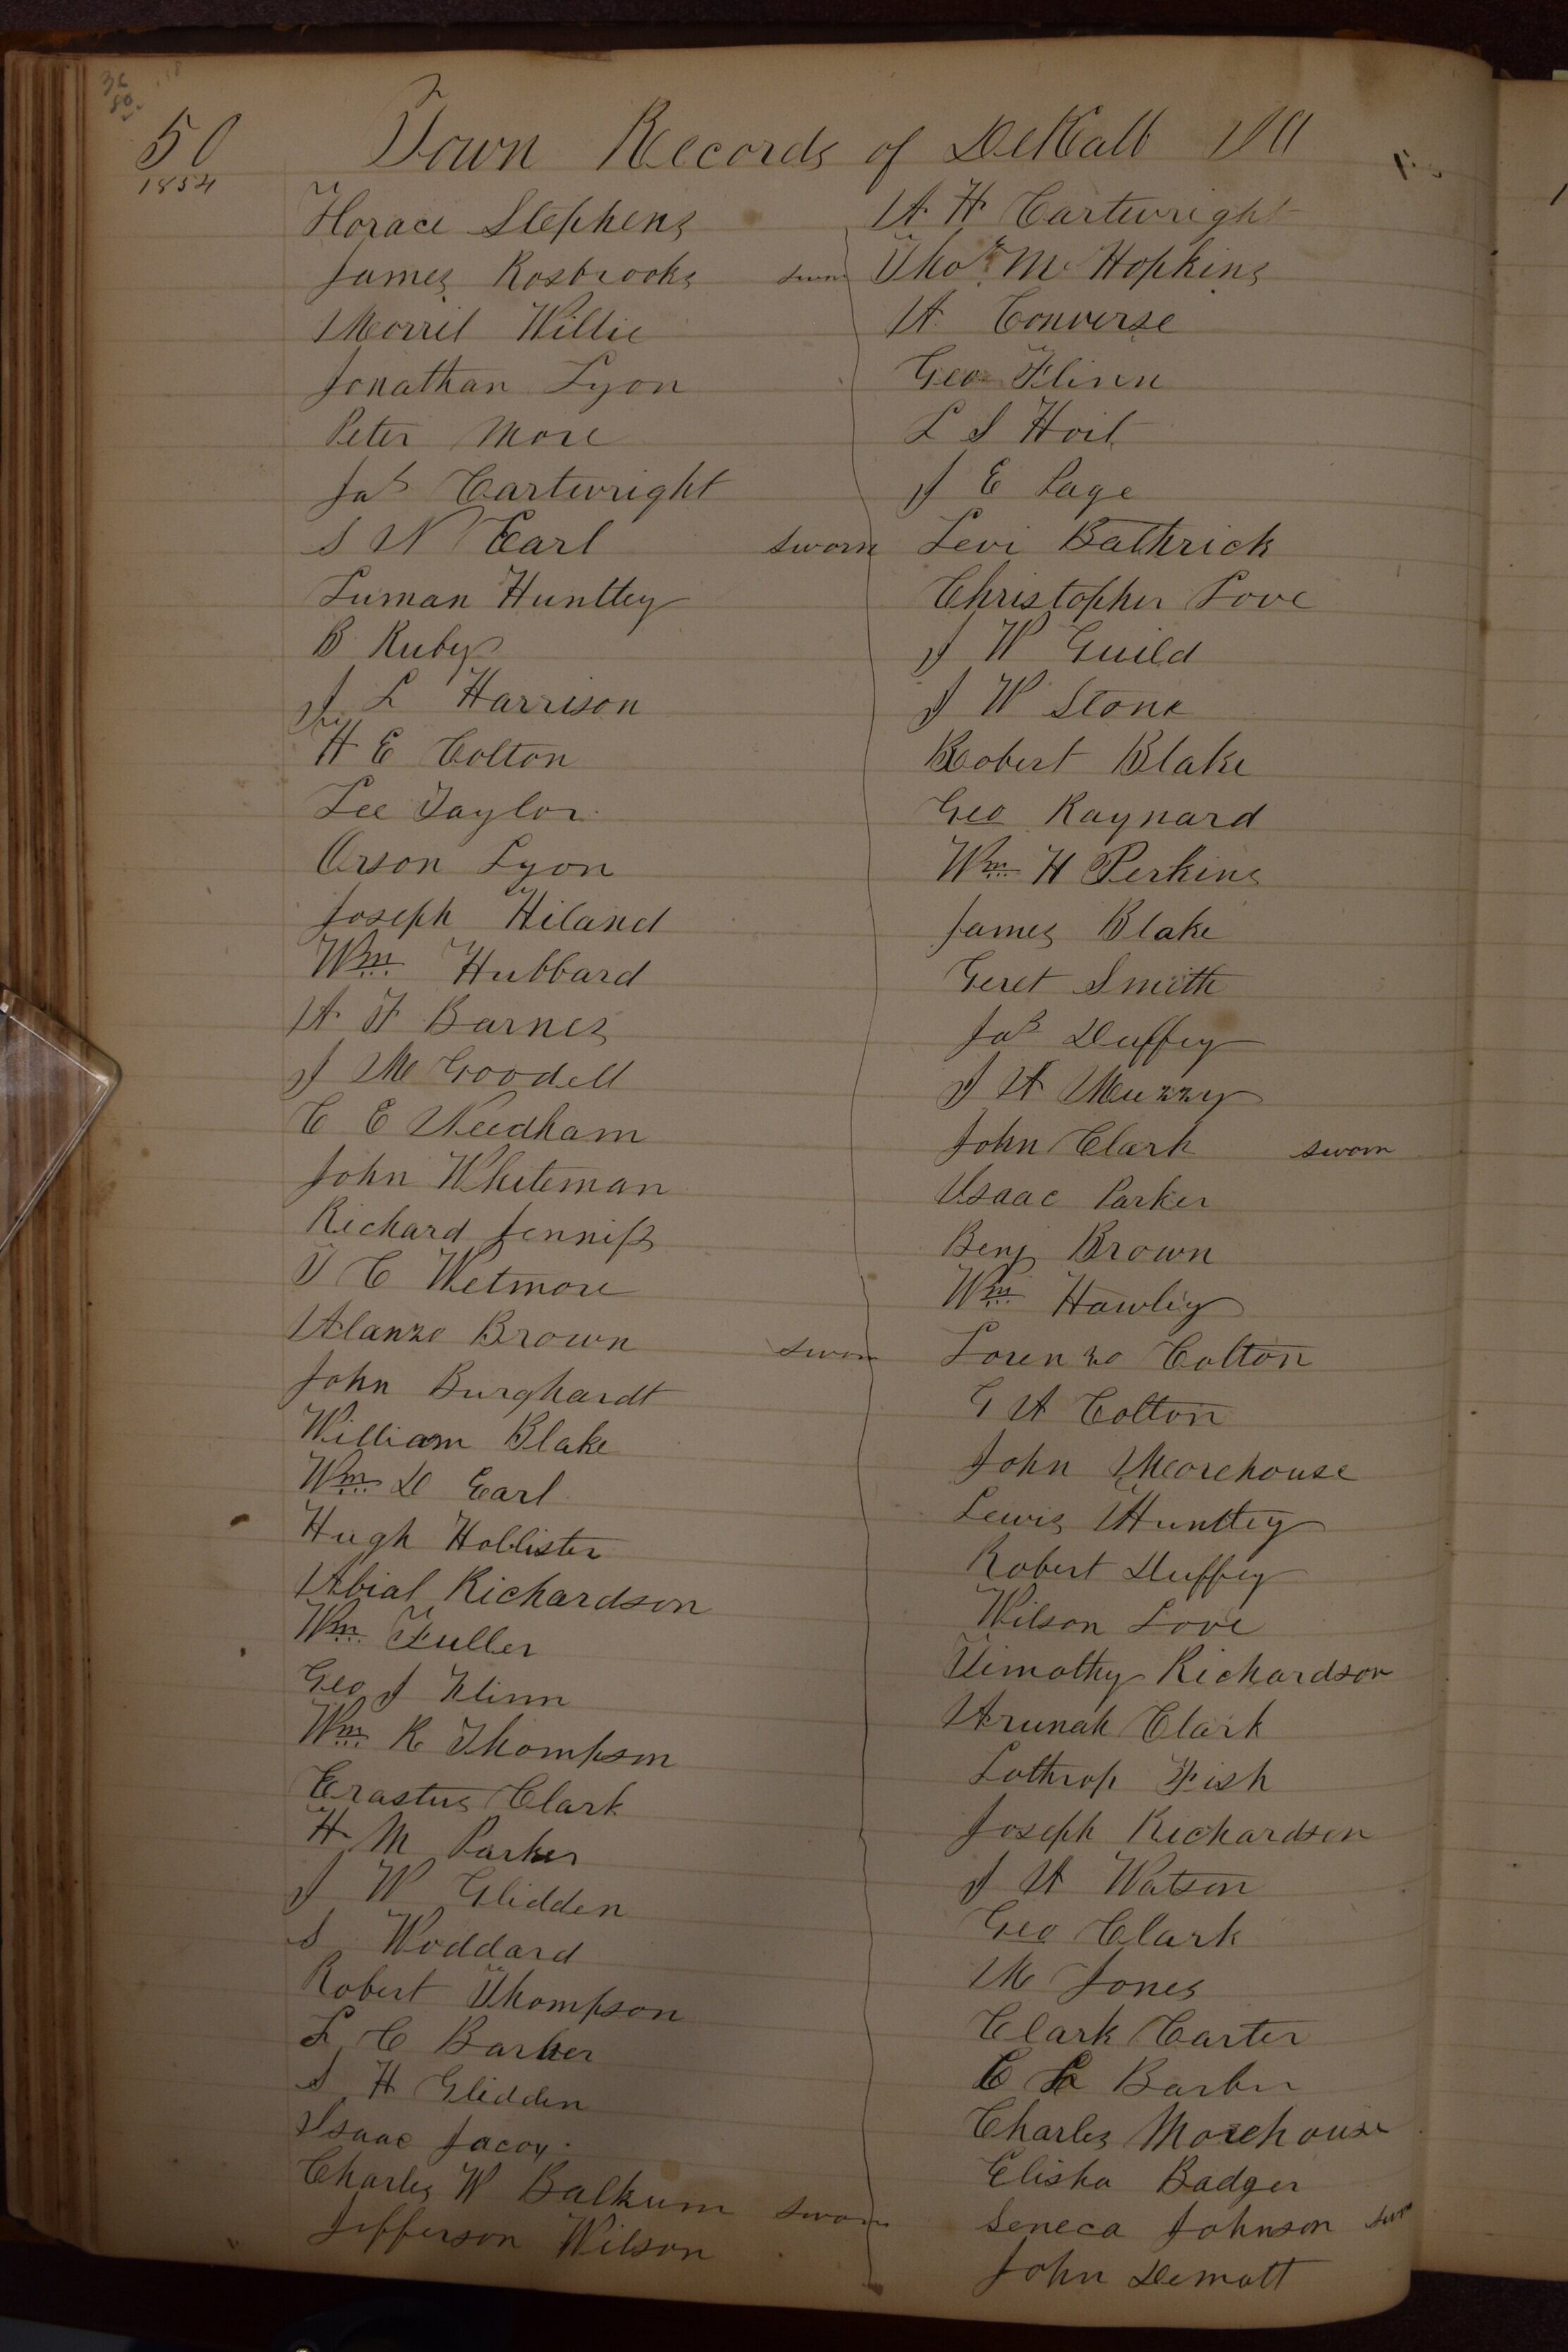 50
1854
Town Records of DeKalb Ill
Horace Stephens
James Rosbrooks sworn
Morril Willie
Jonathan Lyon
Peter More
Jas Cartwright
S N Earl sworn
Luman Huntley
B Ruby
J L Harrison
H E Colton
Lee Taylor
Orson Lyon
Joseph Hiland
Wm Hubbard
A F Barnes
J M Goodell
C E Needham
John Whiteman
Richard Jenniss
T C Wetmore
Alanzo Brown sworn
John Burghardt
William Blake
Wm D Earl
Hugh Hollister
Abial Richardson
Wm Fuller
Geo J Flinn
Wm R Thompson
Erastus Clark
H M Parker
J W Glidden
S Woddard
Robert Thompson
L C Barber
S H Glidden
Isaac Jacox
Charles W Balkum sworn
Jefferson Wilson
A H Cartwright
Thos M Hopkins
A Converse
Geo Flinn
L S Hoit
J E Page
Levi Bathrick
Christopher Love
J W Guild
J W Stone
Robert Blake
Geo Raynard
Wm H Perkins
James Blake
Geret Smith
Jas Duffey
J A Muzzy
John Clark sworn
Isaac Parker
Benj Brown
Wm Hawley
Lorenzo Colton
G A Colton
John Morehouse
Lewis Huntley
Robert Duffey
Wilson Love
Timothy Richardson
Arunah Clark
Lothrop Fish
Joseph Richardson
J A Watson
Geo Clark
M Jones
Clark Carter
C L Barber
Charles Morehouse
Elisha Badger
Seneca Johnson sworn
John Demott